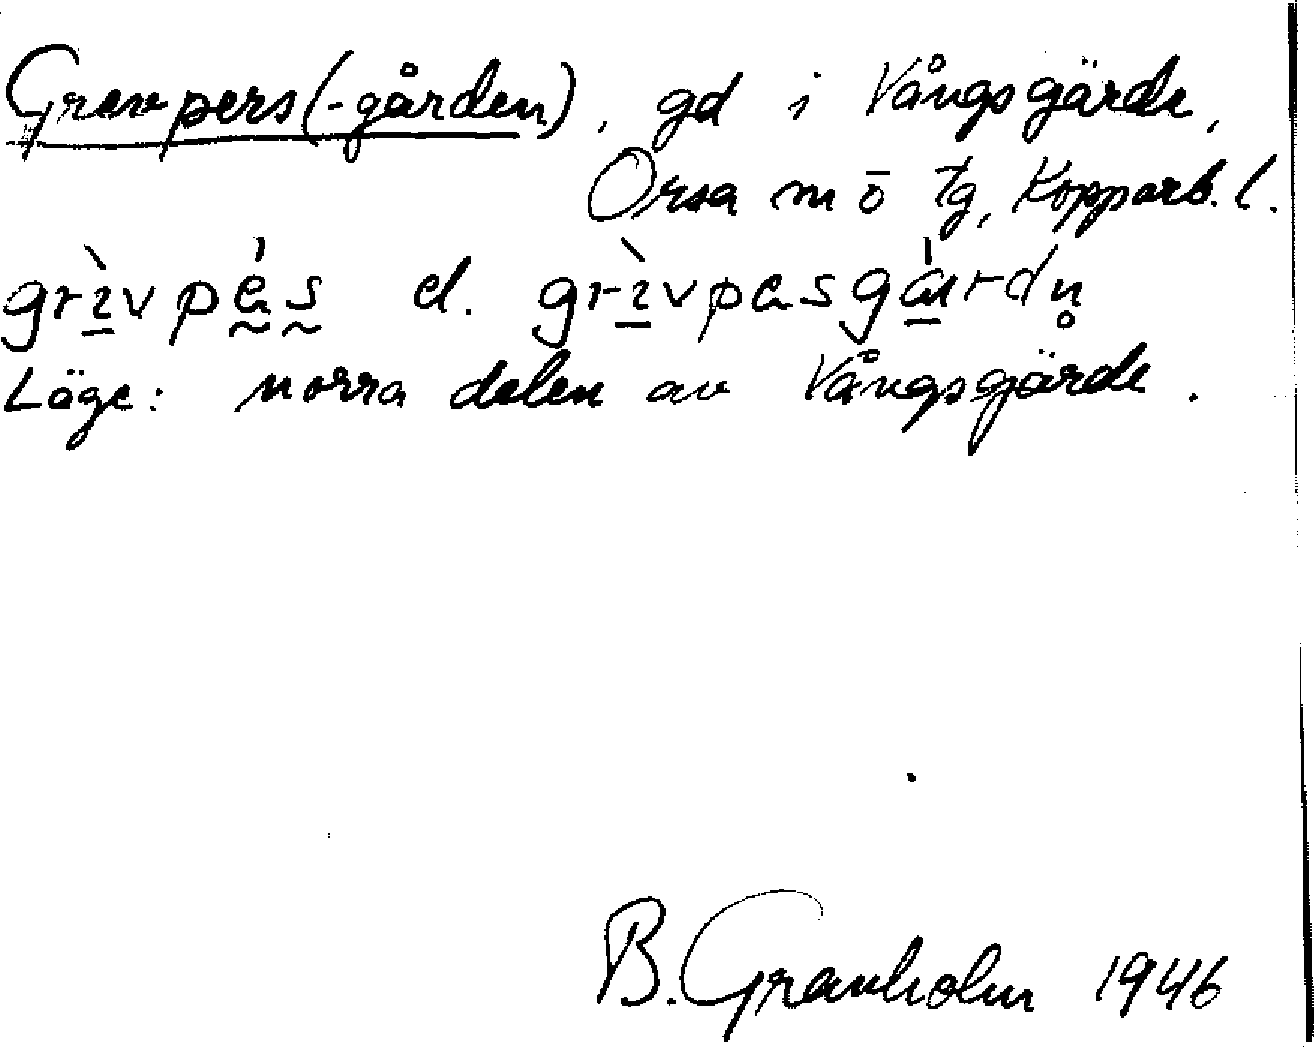 Grevpers(-gården), gd i Vångsgärde,
Orsa m ö tg, Kopparb. l.
grìvpés el. grìvpesgárdn̥
Läge: norra delen av Vångsgärde.
B. Granholm 1946